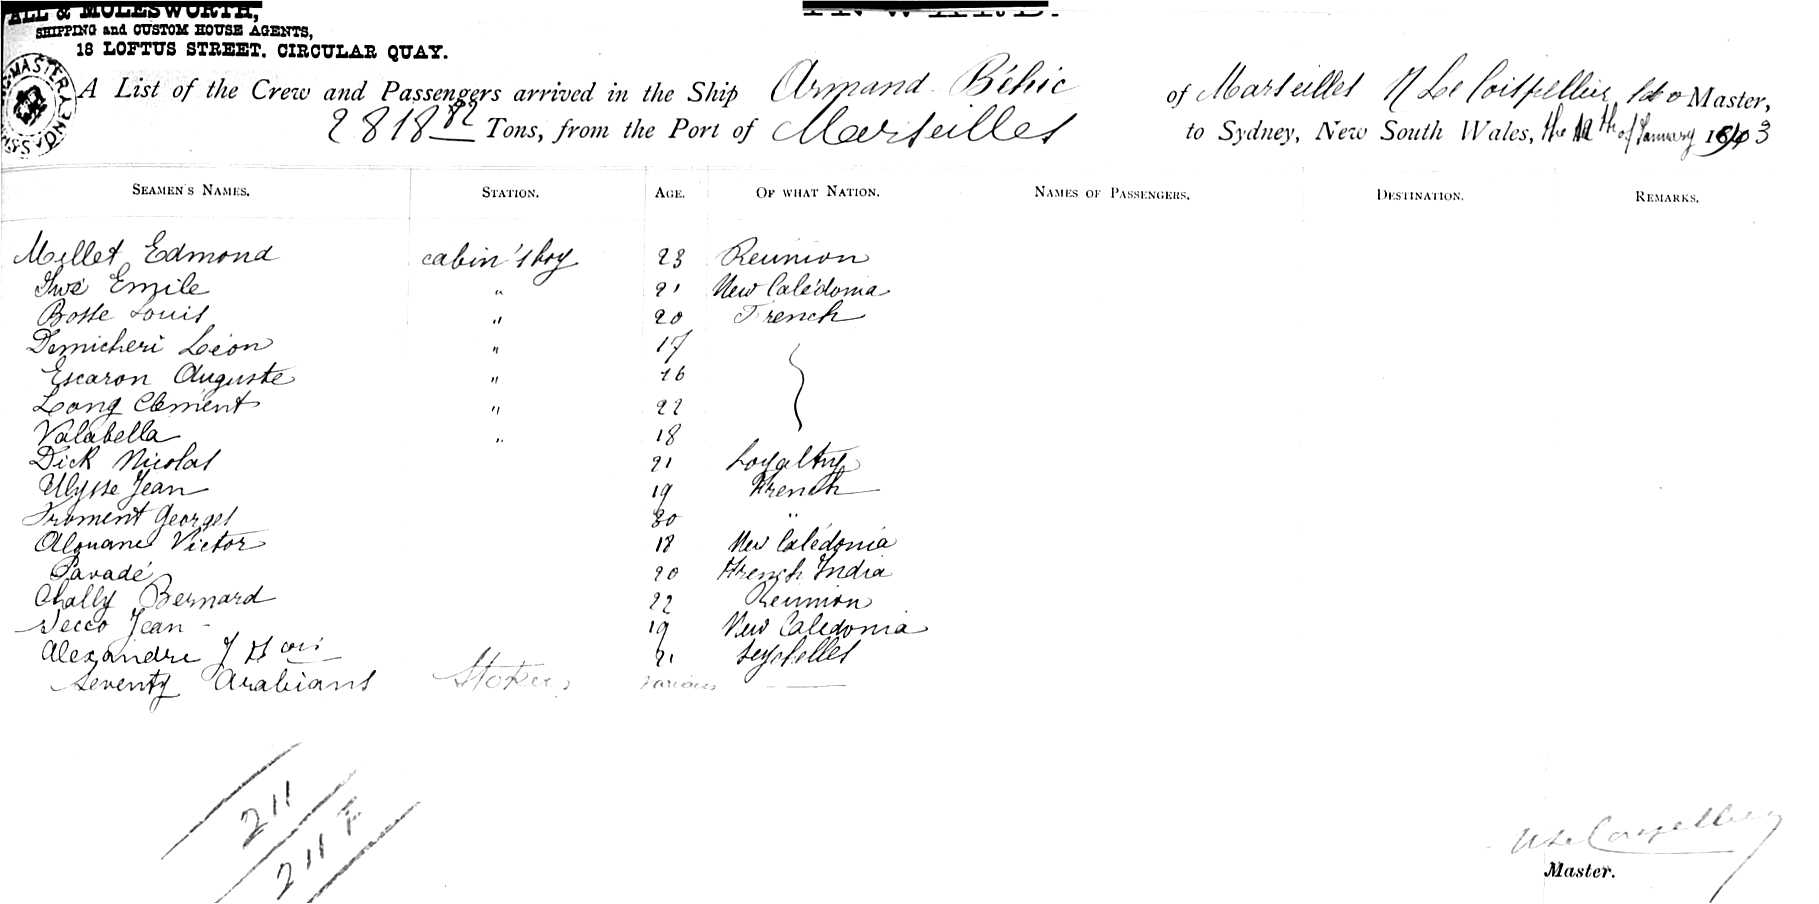 ALL & MOLESWORTH,
SHIPPING and CUSTOM HOUSE AGENTS,
18 LOFTUS STREET. CIRCULAR QUAY.
INWARD.
A List of the Crew and Passengers arrived in the Ship Armand Béhic of Marseilles Master,
2818 82 Tons, from the Port of Marseilles to Sydney, New South Wales, the of January 3
SEAMEN'S NAMES. STATION. AGE. OF WHAT NATION. NAMES OF PASSENGERS. DESTINATION. REMARKS.
Millet Edmond cabin's boy 23 Reunion
Emile " 21 New Calédonia
Bosse Louis " 20 French
Demicheri Léon " 17
Escaron Auguste " 16
Long Clément " 22
Valabella " 18
Dick Nicolas 21 Loyalty
Ulysse Jean 19 French
Froment Georges 30 "
Victor 18 New Calédonia
Pavadé 20 French India
Chally Bernard 22 Reunion
Secco Jean 19 New Caledonia
Alexandre 21 Seychelles
Seventy Arabians Stokers various
211
211 F
Master.